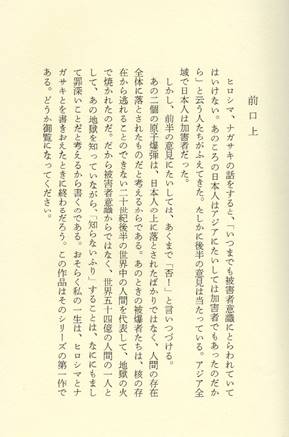 前口上
ヒロシマ、ナガサキの話をすると、「いつまでも被害者意識にとらわれていて
はいけない。あのころの日本人はアジアにたいしては加害者でもあったのだか
ら」と云う人たちがふえてきた。たしかに後半の意見は当たっている。アジア全
域で日本人は加害者だった。
しかし、前半の意見にたいしては、あくまで「否！」と言いつづける。
あの二個の原子爆弾は、日本人の上に落とされたばかりではなく、人間の存在
全体に落とされたものだと考えるからである。あのときの被爆者たちは、核の存
在から逃れることのできない二十世紀後半の世界中の人間を代表して、地獄の火
で焼かれたのだ。だから被害者意識からではなく、世界五十四億の人間の一人と
して、あの地獄を知っていながら、「知らないふり」することは、なににもまし
て罪深いことだと考えるから書くのである。おそらく私の一生は、ヒロシマとナ
ガサキとを書きおえたときに終わるだろう。この作品はそのシリーズの第一作で
ある。どうか御覧になってください。